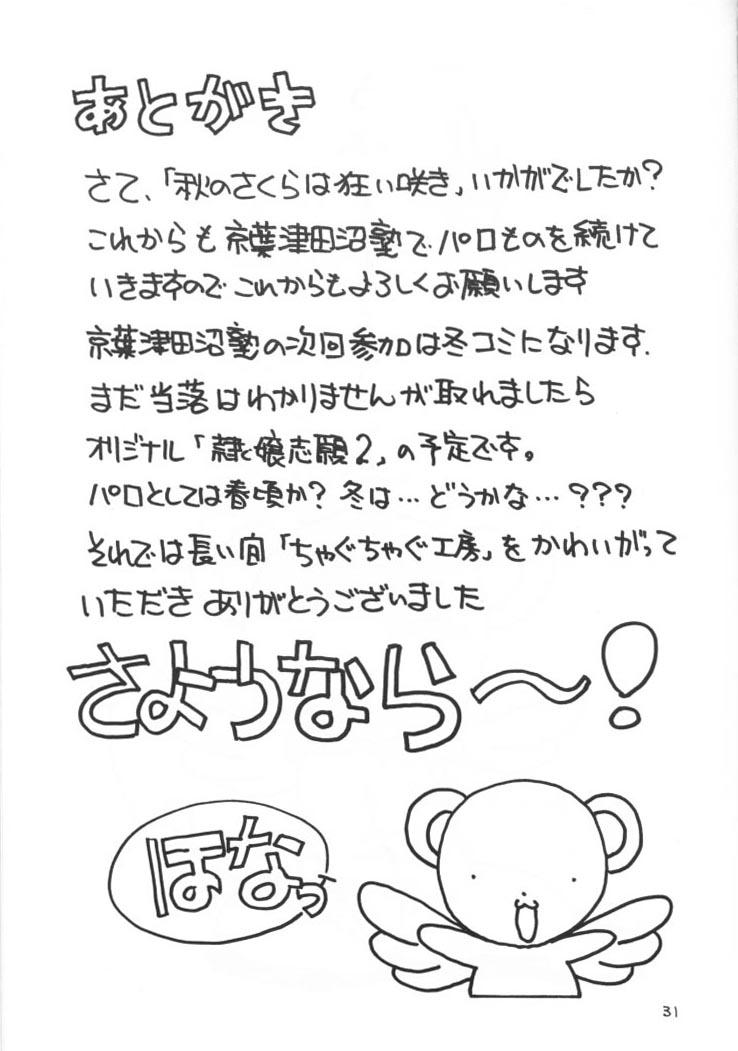 あとがき
さて、「秋のさくらは狂い咲き」いかがでしたか?
これからも京葉津田沼塾でパロものを続けて
いきますのでこれからもよろしくお願いします
京葉津田沼塾の次回参加は冬コミになります.
まだ当落はわかりませんが取れましたら
オリジナル「隷嬢志願2」の予定です。
パロとしては春頃か? 冬は…どうかな…???
それでは長い間「ちゃぐちゃぐ工房」をかわいがって
いただきありがとうございました
さようなら〜!
ほなっ
31